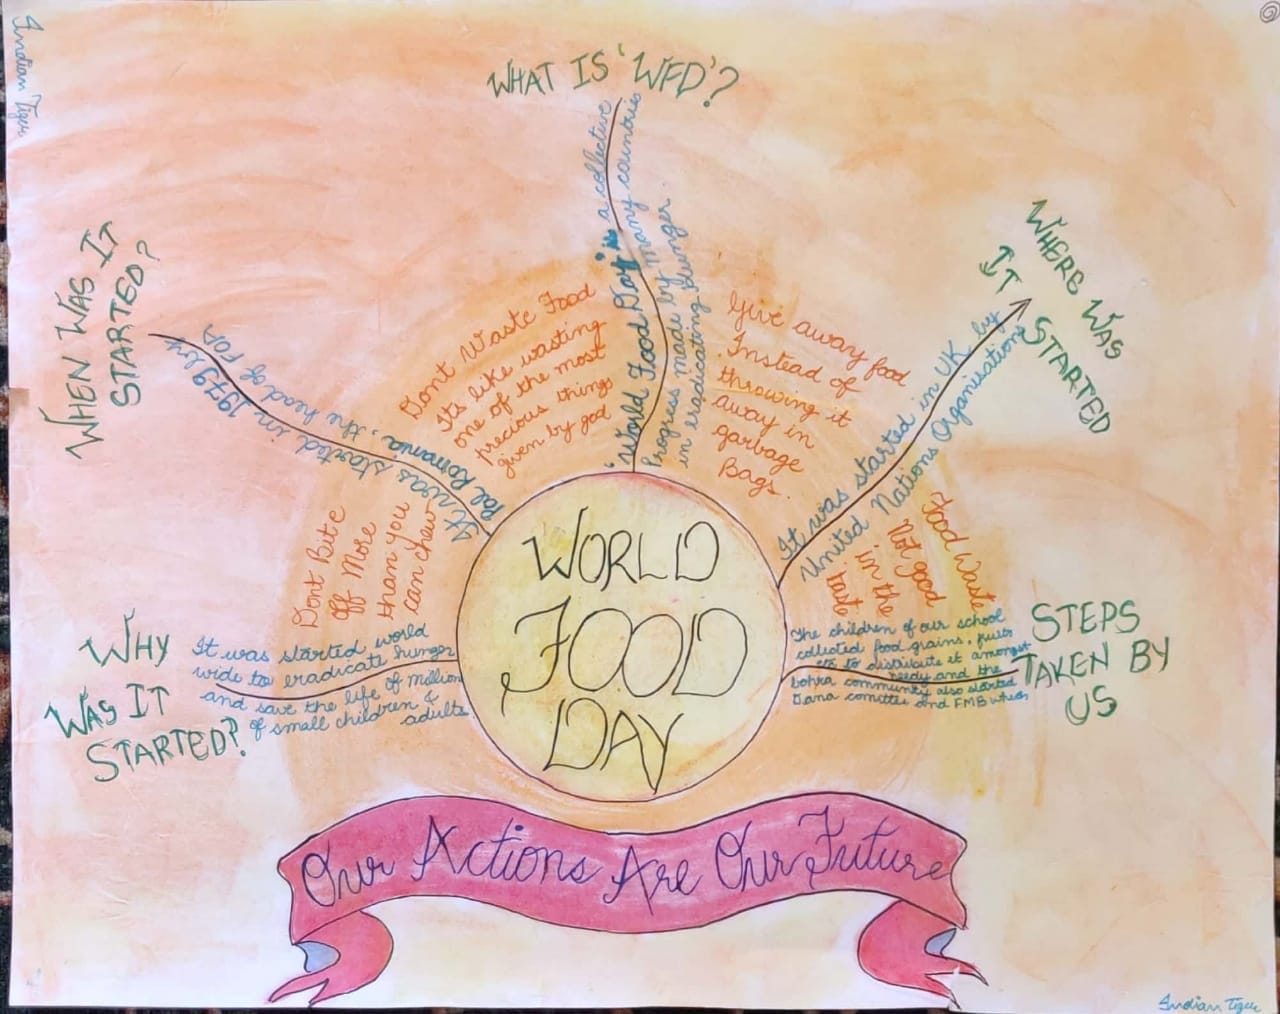 Indian Tiger
WHAT IS 'WFD'?
"World Food Day" is a collective
Progress made by many countries
in eradicating hunger
WHEN WAS IT
STARTED?
It was started in 1979 by
Pal Romania, the head of FOA
WHERE WAS
IT
STARTED
It was started in UK by
United Nations Organisations
Dont Waste Food
Its like wasting
one of the most
precious things
given by god
Give away food
Instead of
throwing it
away in
garbage
Bags.
Dont Bite
Off More
than you
can chew
Food Waste
Not good
in the
taste
WHY
WAS IT
STARTED?
It was started world
wide to eradicate hunger
and save the life of million
of small children &
adults
STEPS
TAKEN BY
US
The children of our school
collected food grains, fruits
etc to distribute it amongst
needy and the
bohra community also started
Dana comittee and FMB which
WORLD
FOOD
DAY
Our Actions Are Our Future
Indian Tiger